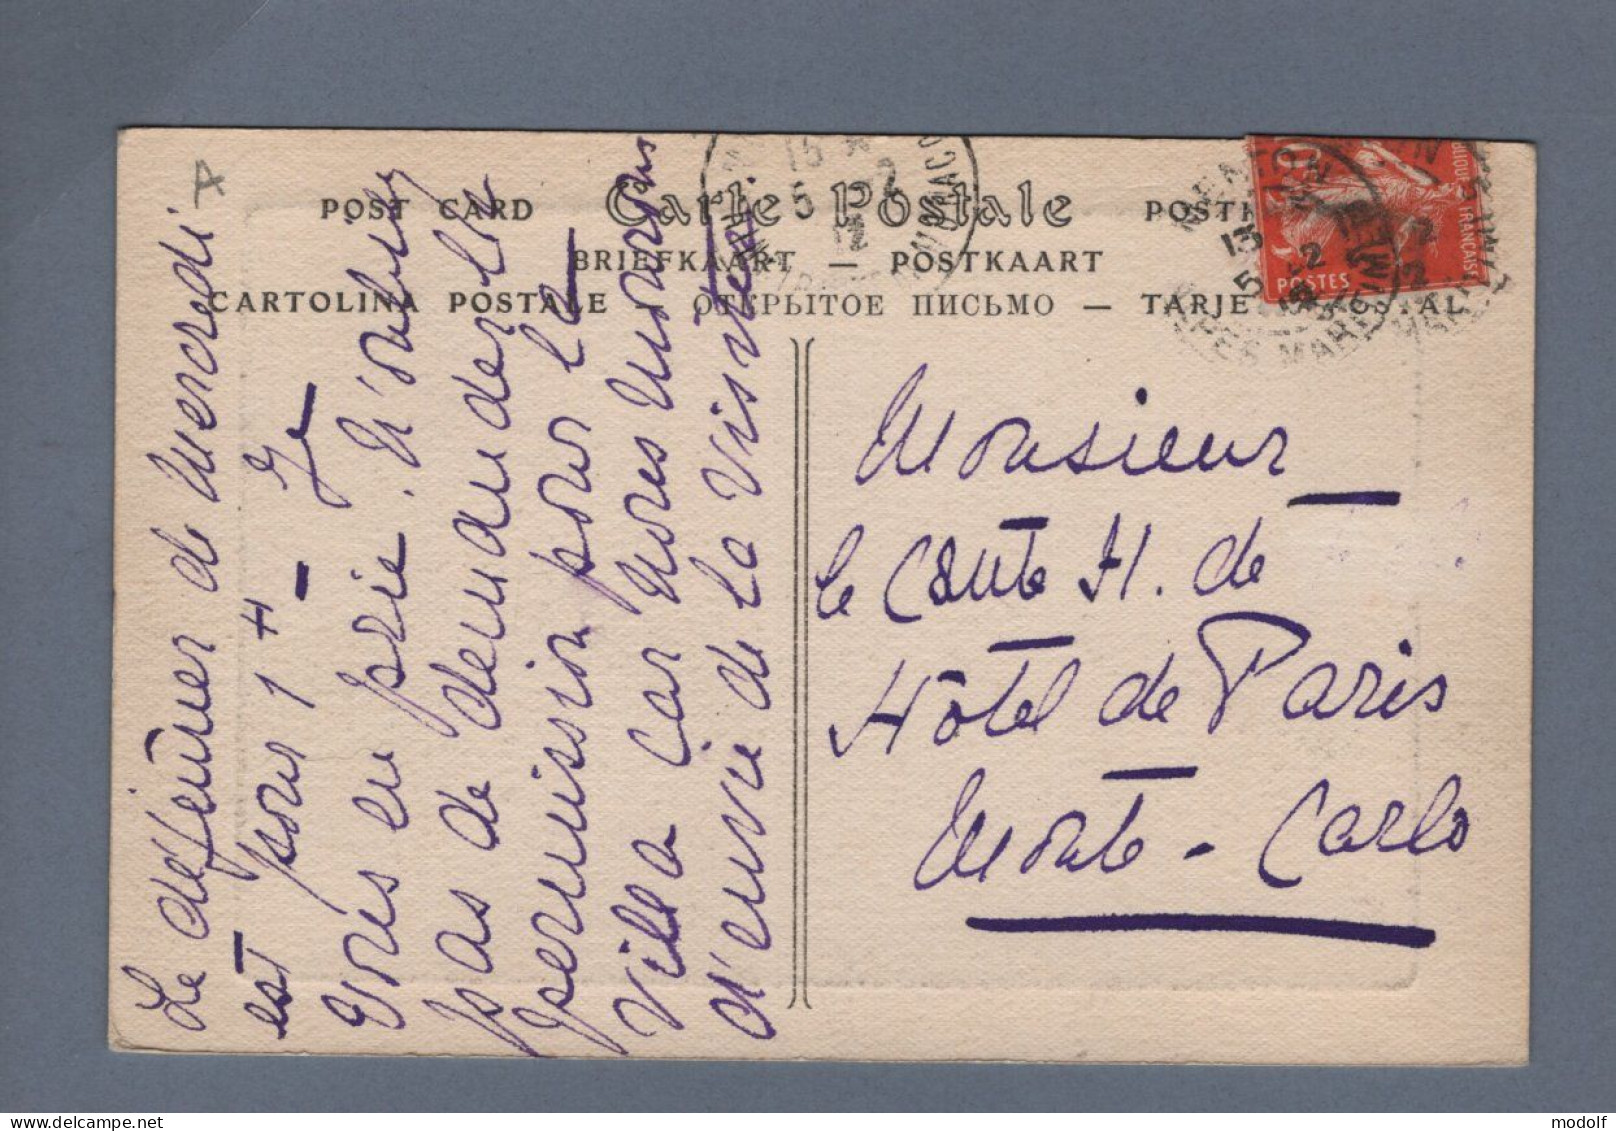 A
POST CARD Carte Postale POSTK
BRIEFKAART — POSTKAART
CARTOLINA POSTALE ОТКРЫТОЕ ПИСЬМО — TARJE POSTAL
15
5 2
12
MONACO
MENTON
13
5 2
12
ALPES MARITIMES
FRANÇAISE
POSTES
Le déjeûner de Mercredi
est pour 1 H – Je
vous en prie. N'oubliez
pas de demander la
permission pour la
Villa car nous mourons
d'envie de la visiter.
Monsieur
le Comte H. de
Hôtel de Paris
Monte-Carlo
www.delcampe.net
modolf